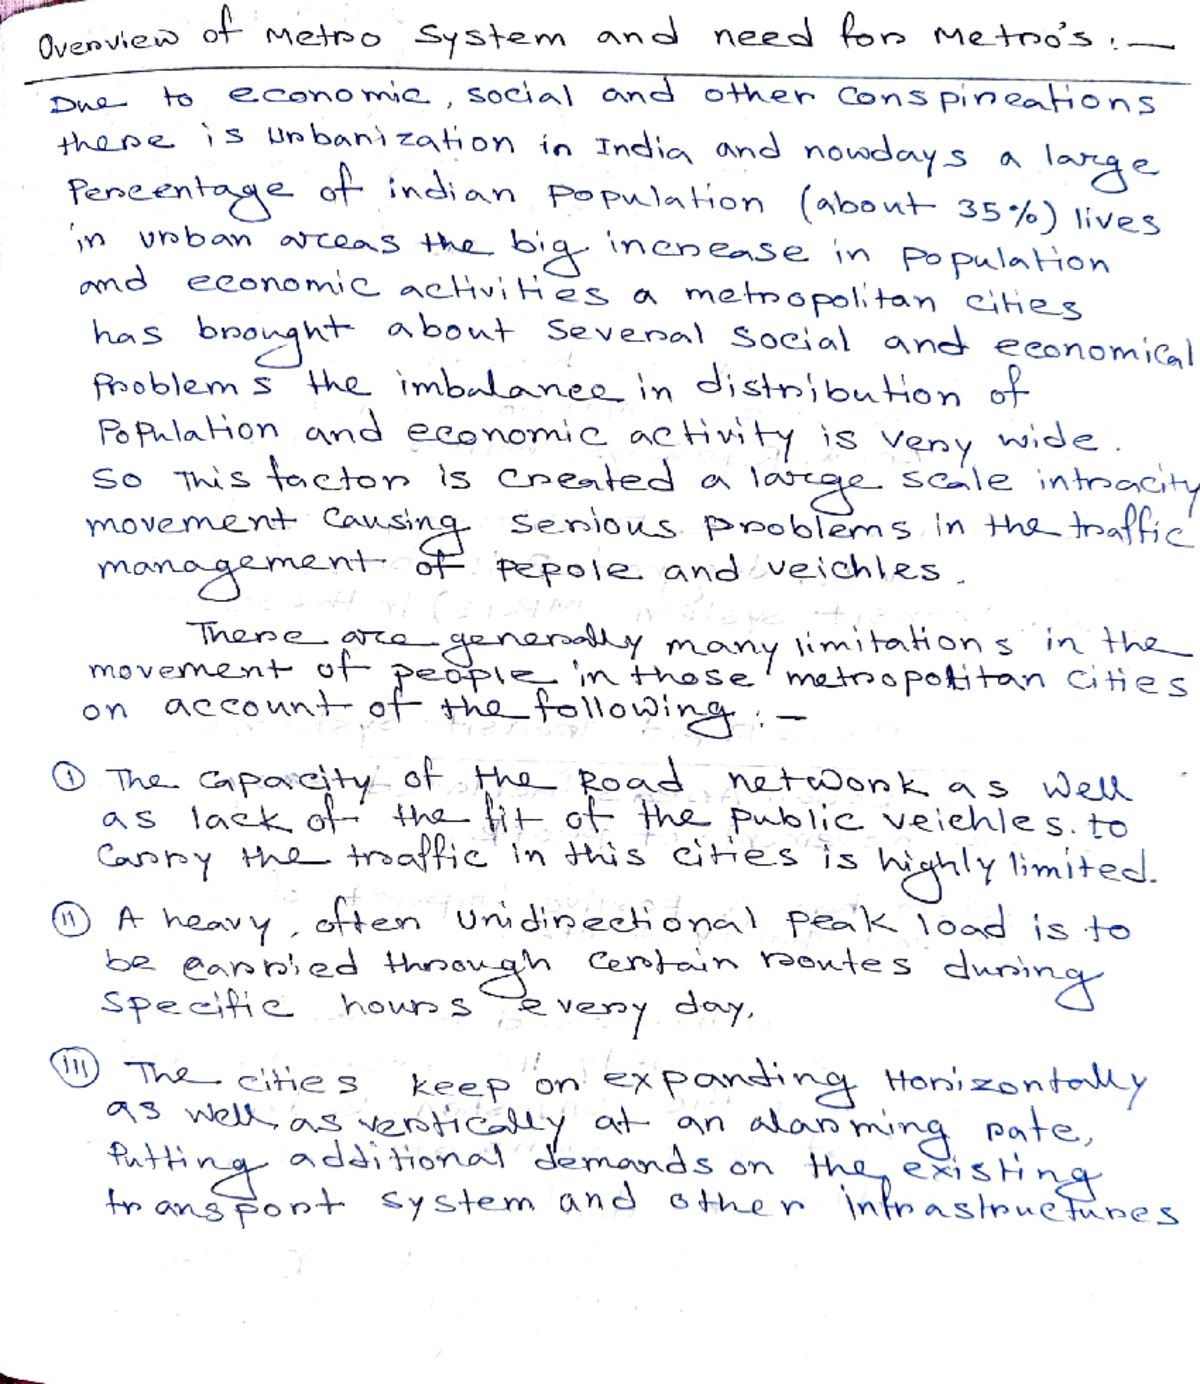 Overview of Metro System and need for Metro's :—
Due to economic, social and other conspireations
there is Urbanization in India and nowdays a large
Percentage of indian population (about 35%) lives
in urban areas the big increase in population
and economic activities a metropolitan cities
has brought about several social and economical
Problems the imbalance in distribution of
Population and economic activity is very wide.
So This factor is created a large scale intracity
movement causing serious problems in the traffic
management of pepole and veichles.
There are generally many limitations in the
movement of people in those metropolitan cities
on account of the following :—
(i) The capacity of the Road network as well
as lack of the fit of the public veichles. to
carry the traffic in this cities is highly limited.
(ii) A heavy, often unidirectional peak load is to
be carried through certain routes during
specific hours every day.
(iii) The cities keep on expanding Horizontally
as well as vertically at an alarming rate,
Putting additional demands on the existing
transport system and other infrastructures